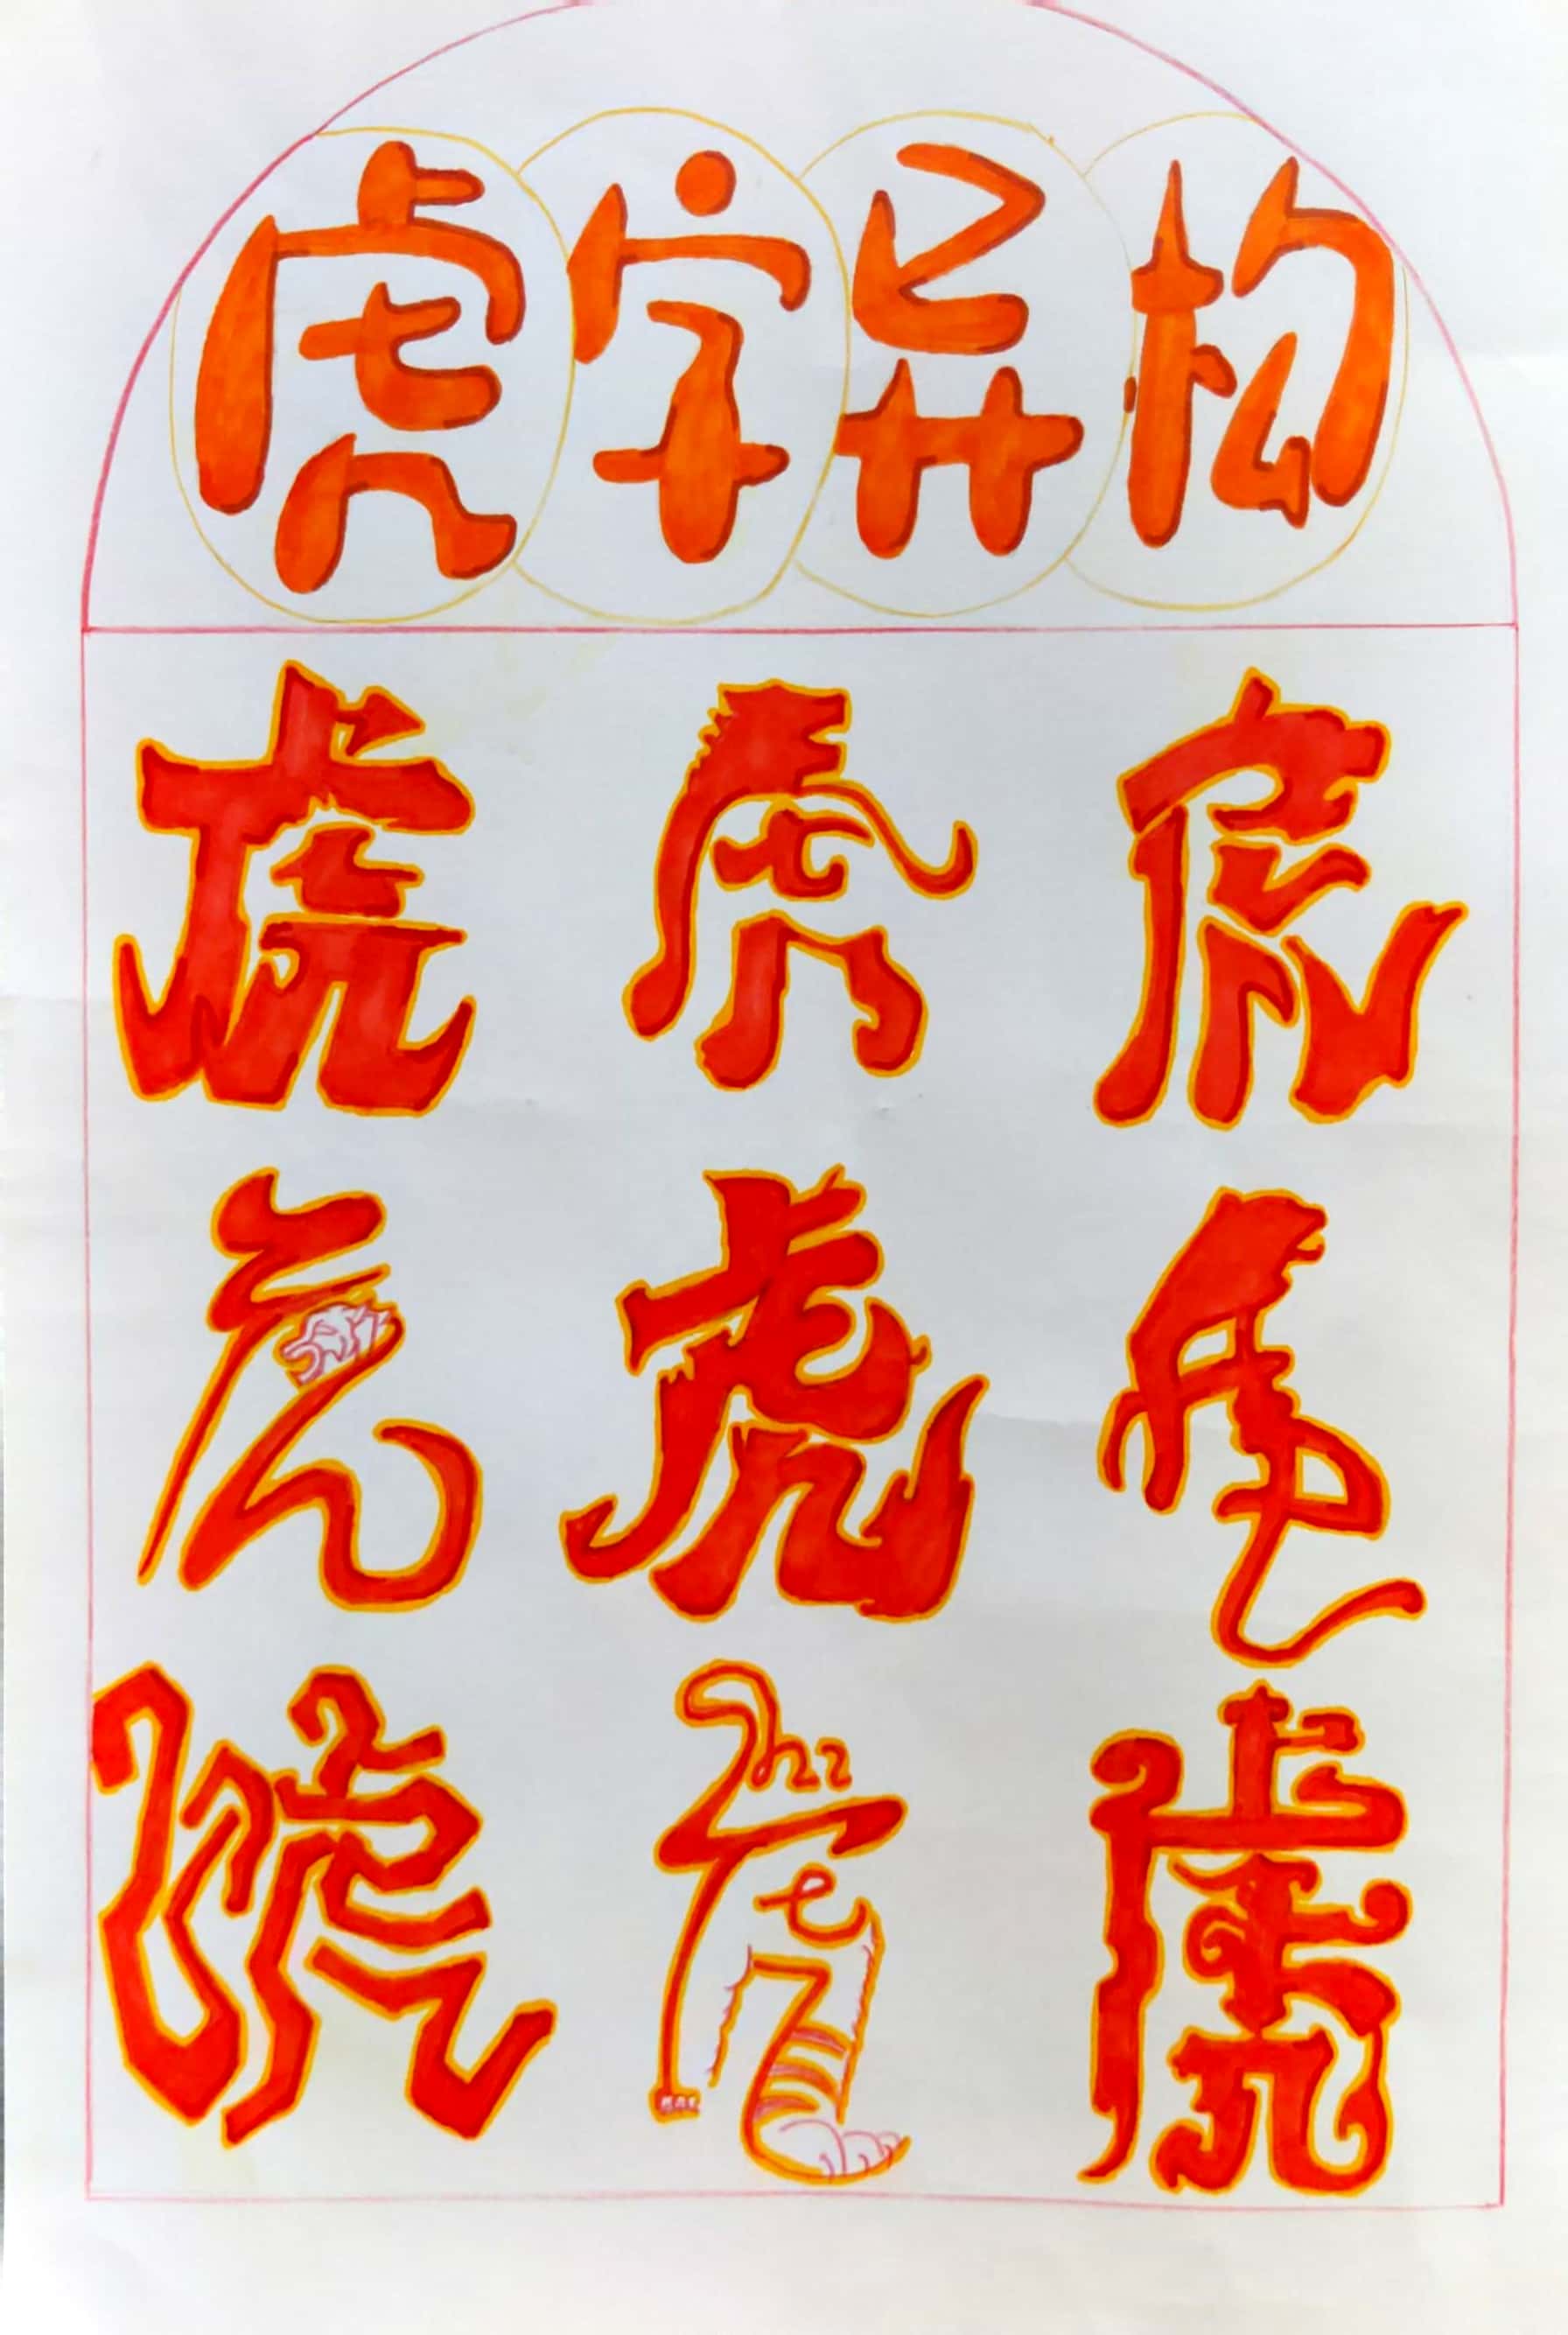 虎字异构
虎 虎 虎
虎 虎 虎
虎 虎 虎